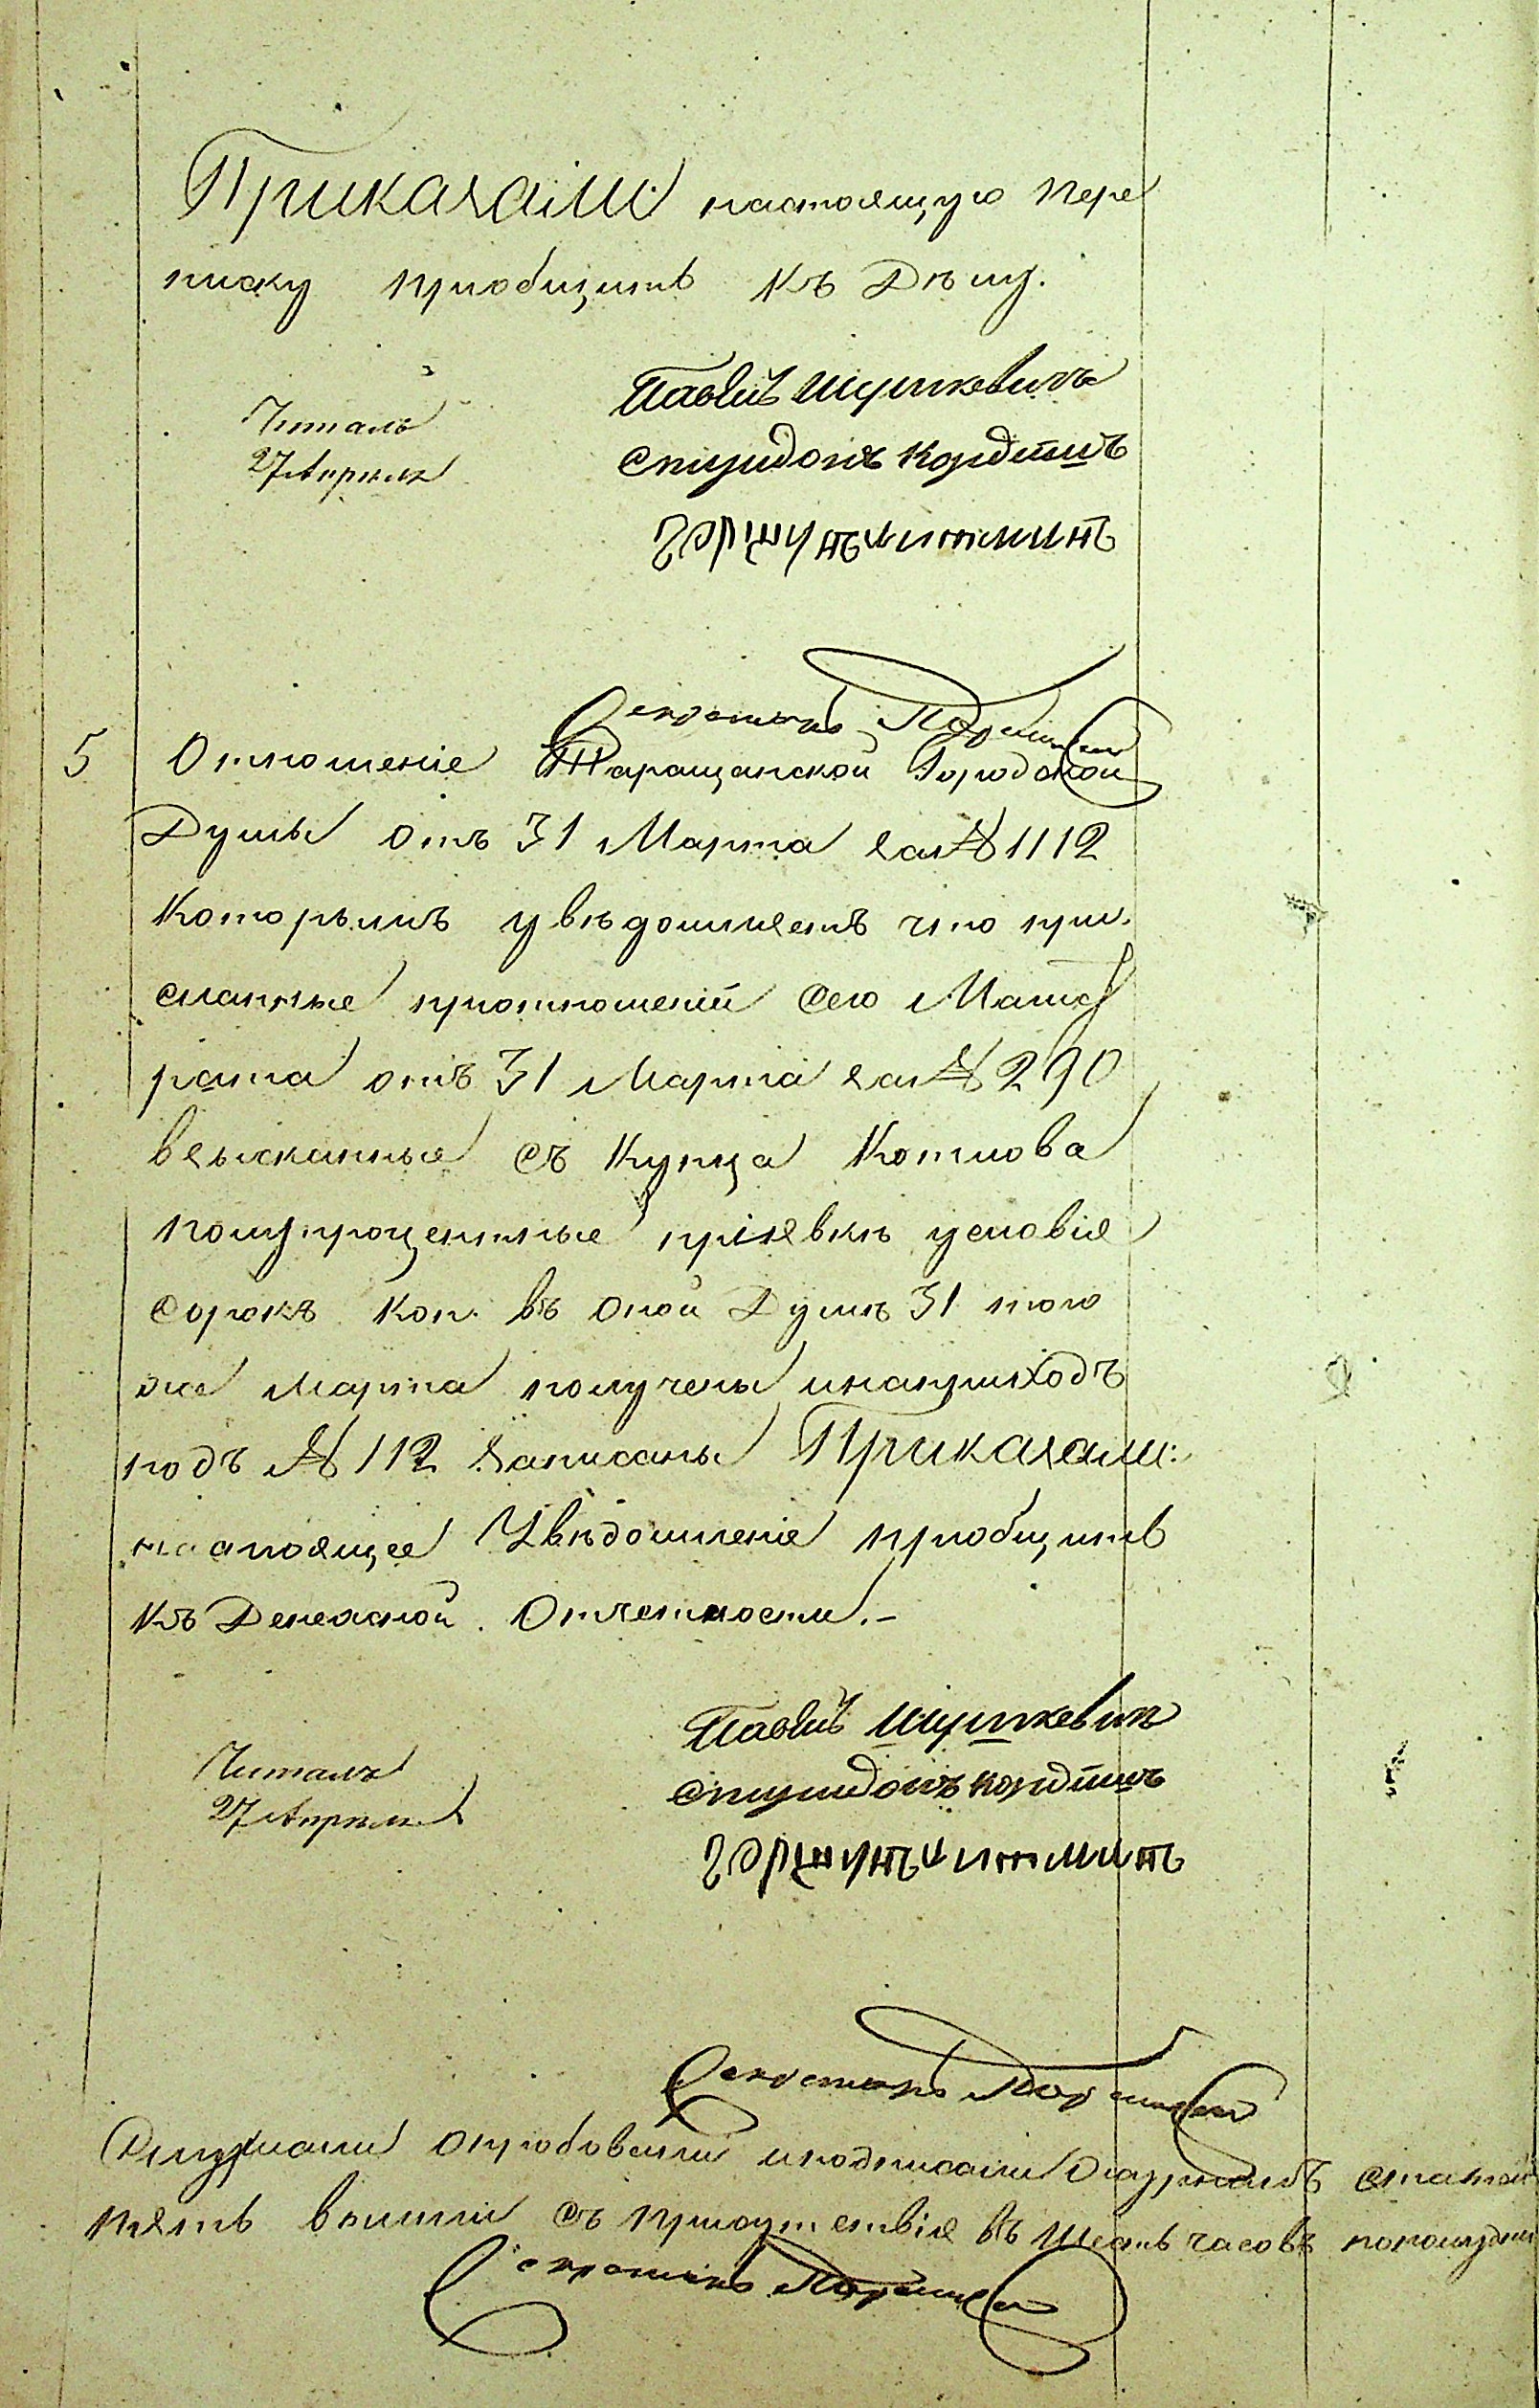 Приказали: настоящую пере
писку пріобщить къ Дѣлу.
Читалъ
27 Апрѣля
Павелъ
Секретарь
5 Отношеніе Таращанской Городской
Думы отъ 31 Марта за № 1112
которымъ увѣдомляетъ что при-
сланные приотношеній сего Магист
рата отъ 31 Марта за № 290
взысканные съ Купца Котлова
полупроцентные приявкѣ условія
сорокъ коп. въ оной Думѣ 31 того
же Марта получены инаприходъ
подъ № 112 записаны Приказали:
настоящее Увѣдомленіе пріобщить
къ Денежной Отчетности.-
Читалъ
27 Апрѣля
Павелъ
Секретарь
Слушали опробовали иподписали журналъ статей
пять вышли съ присутствія въ шесть часовъ пополудни
Секретарь